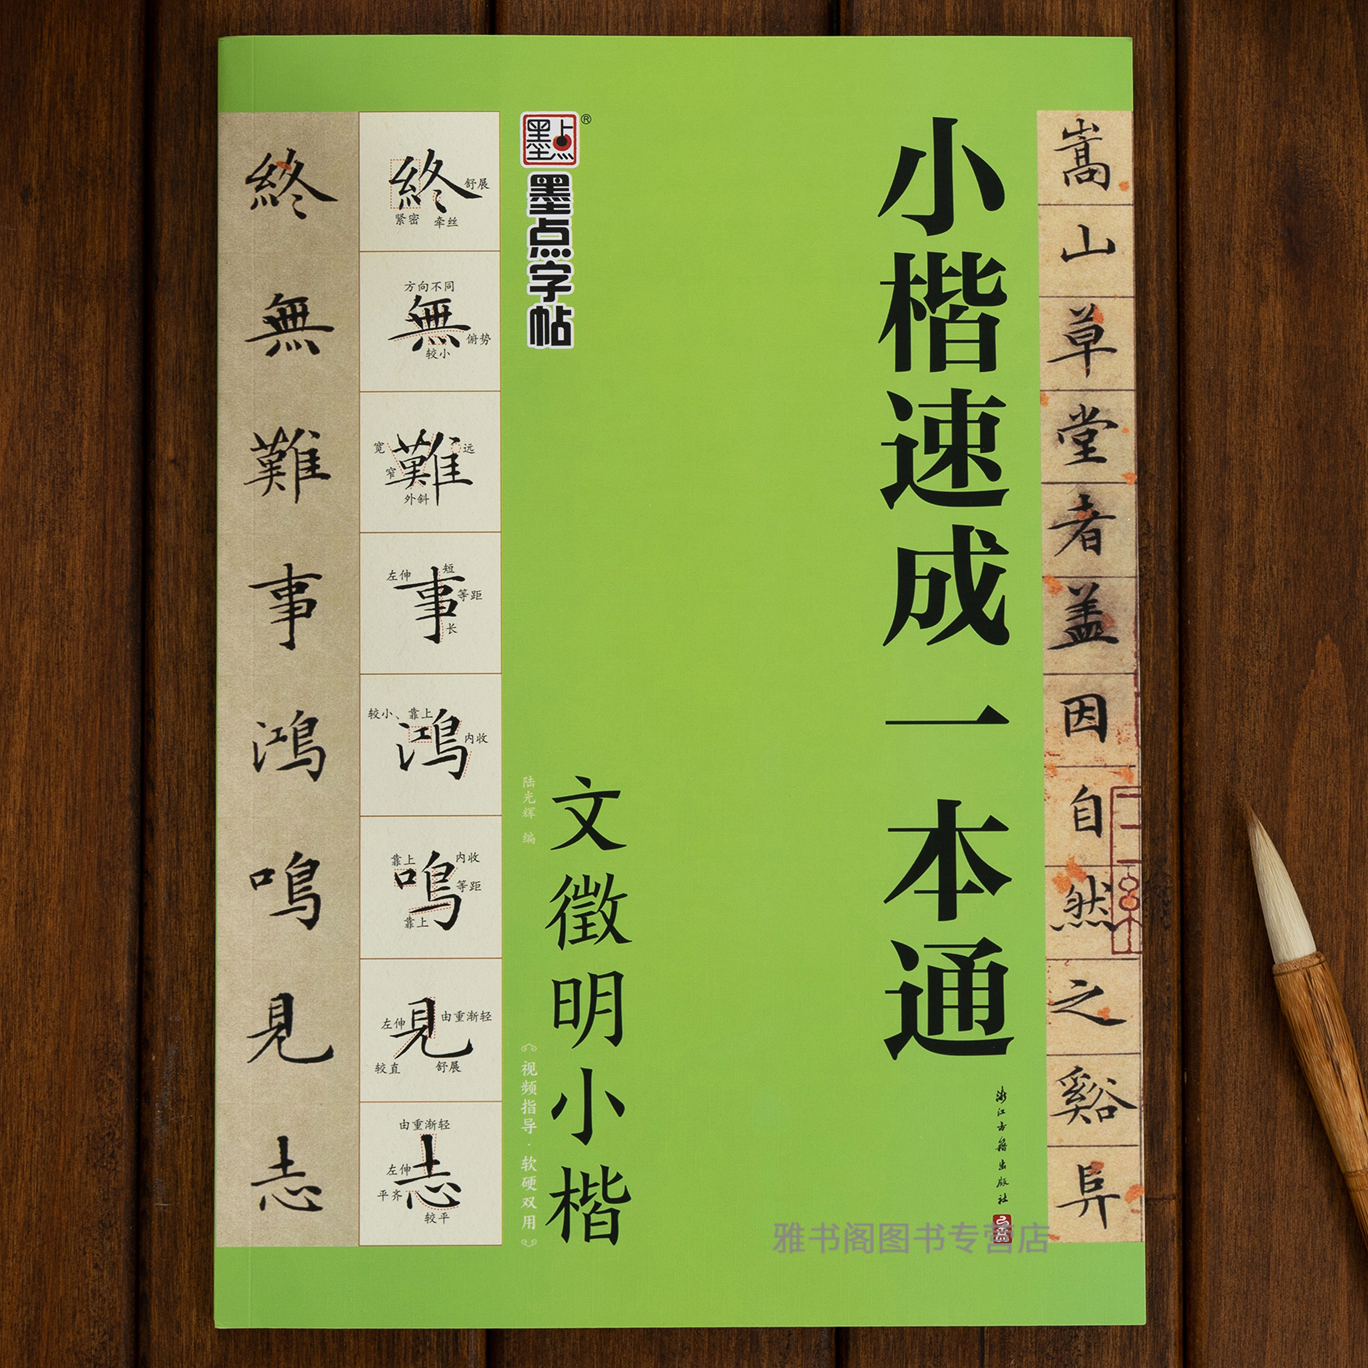 嵩山草堂者盖因自然之谿阜
小楷速成一本通
浙江古籍出版社
墨点
®
墨点字帖
文徵明小楷
陆光辉 编
《视频指导·软硬双用》
終
舒展
紧密
牵丝
無
方向不同
俯势
较小
難
宽
远
窄
外斜
事
左伸
短
等距
长
鴻
较小、靠上
内收
鳴
靠上
内收
等距
靠上
見
左伸
由重渐轻
较直
舒展
志
由重渐轻
左伸
平齐
较平
終無難事鴻鳴見志
雅书阁图书专营店